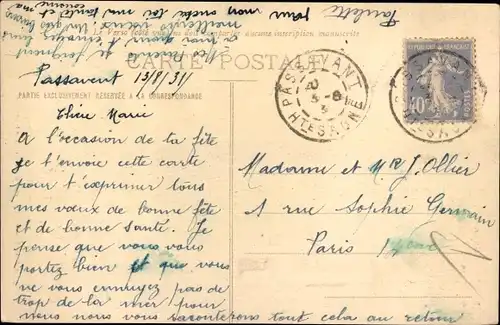 Le Verso faible
aucune inscription manuscrite
CARTE POSTALE
Passavent 13/8/31
PARTIE EXCLUSIVEMENT RÉSERVÉE A LA CORRESPONDANCE
Chère Marie
A l'occasion de ta fête
je t'envoie cette carte
pour t'exprimer tous
mes vœux de bonne fête
et de bonne santé. Je
pense que vous vous
portez bien et que vous
ne vous ennuyez pas de
trop de la mer pour
nous nous vous raconterons tout cela au retour
Paulette pour mon oncle
meilleurs
PASSAVANT
HTE SAONE
RÉPUBLIQUE FRANÇAISE
40
POSTES
PASSAVANT
HTE SAONE
Madame et Mr J. Ollier
1 rue Sophie Germain
Paris